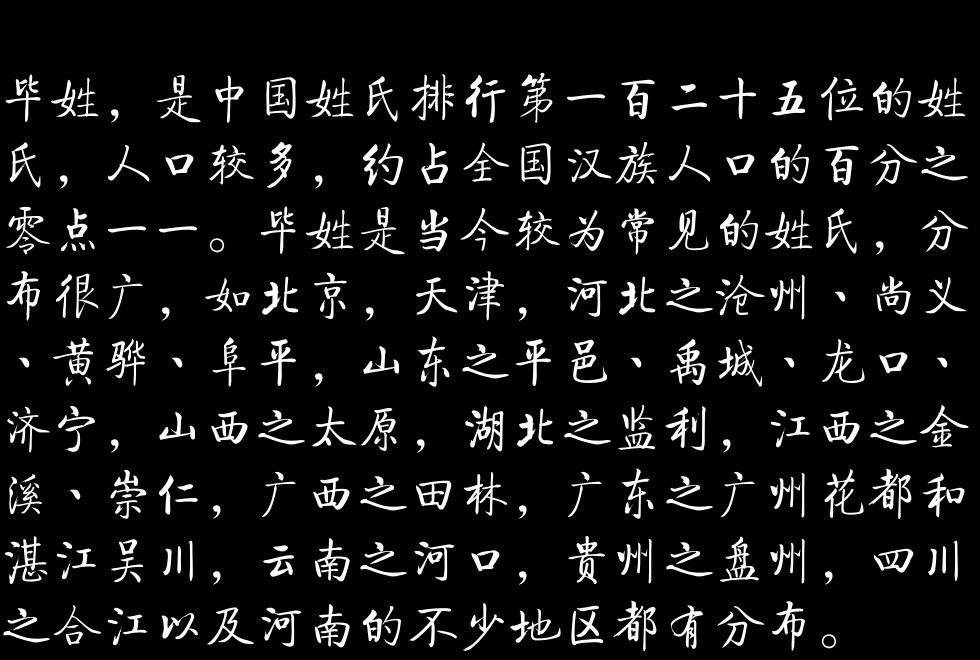 毕姓，是中国姓氏排行第一百二十五位的姓
氏，人口较多，约占全国汉族人口的百分之
零点一一。毕姓是当今较为常见的姓氏，分
布很广，如北京，天津，河北之沧州、尚义
、黄骅、阜平，山东之平邑、禹城、龙口、
济宁，山西之太原，湖北之监利，江西之金
溪、崇仁，广西之田林，广东之广州花都和
湛江吴川，云南之河口，贵州之盘州，四川
之合江以及河南的不少地区都有分布。